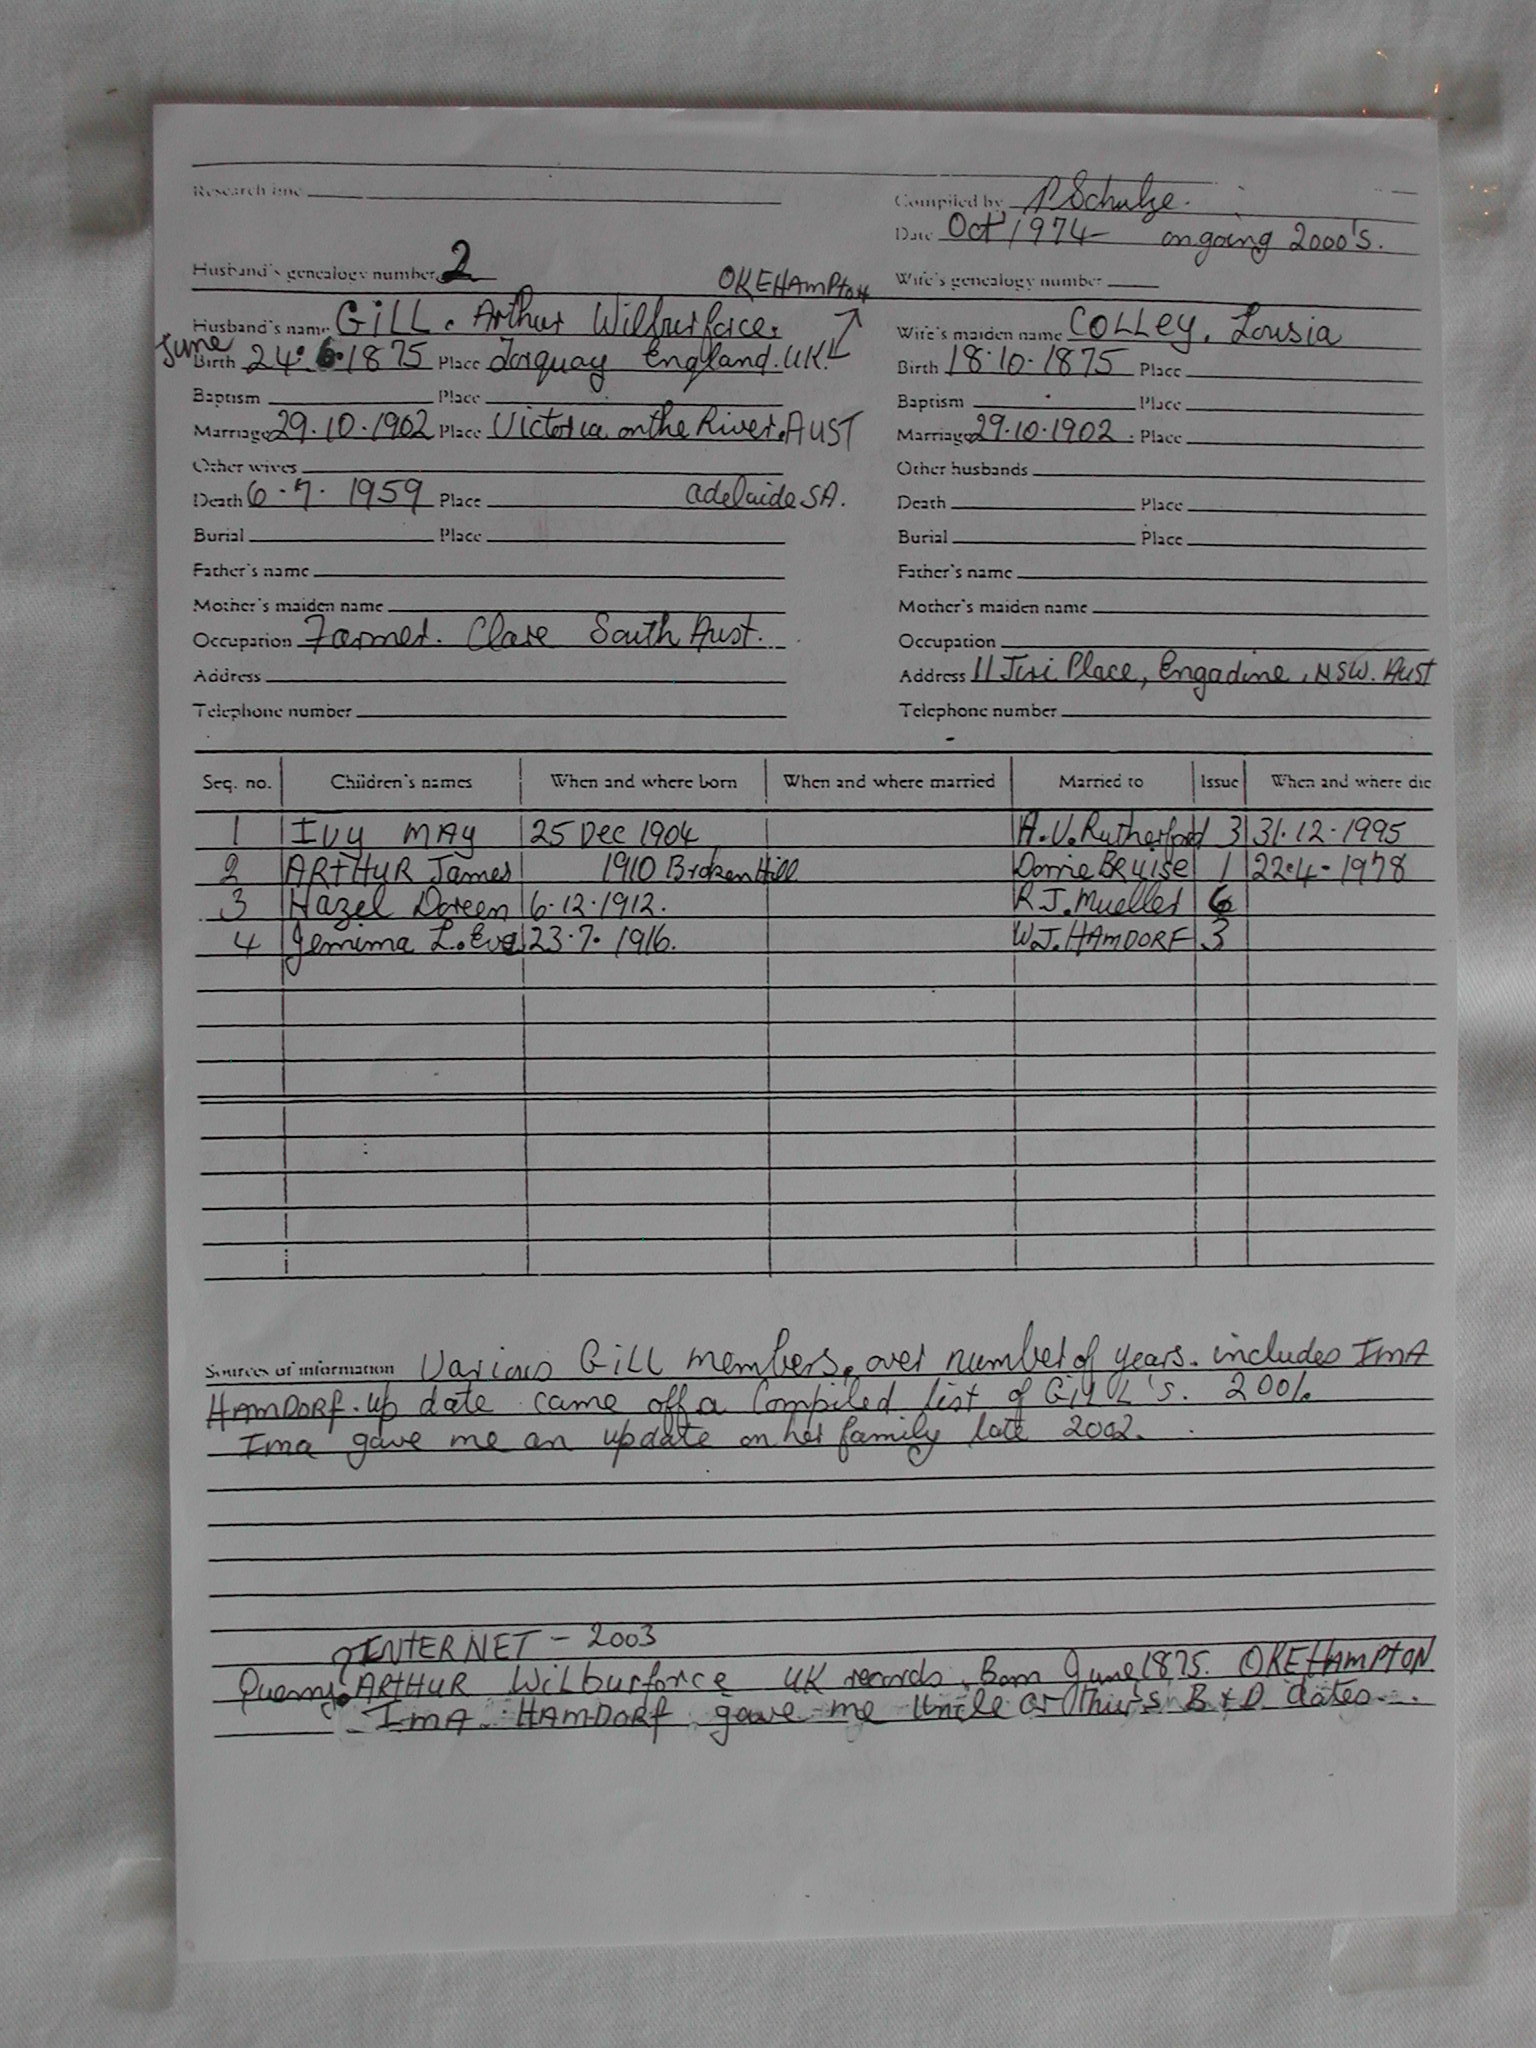 Research line
Compiled by P Schulze.
Date Oct 1974 - ongoing 2000's.
Husband's genealogy number 2
OKEHAmPtoN
Wife's genealogy number
Husband's name GILL. Arthur Wilburforce.
Wife's maiden name COLLEY. Lousia
June
Birth 24. 6. 1875 Place Torquay England. UK.
Birth 18.10.1875 Place
Baptism Place
Baptism Place
Marriage 29.10.1902 Place Victoria on the River. AUST
Marriage 29.10.1902. Place
Other wives
Other husbands
Death 6.7.1959 Place Adelaide SA.
Death Place
Burial Place
Burial Place
Father's name
Father's name
Mother's maiden name
Mother's maiden name
Occupation Farmer. Clare South Aust.
Occupation
Address
Address 11 Jiri Place, Engadine, NSW. Aust
Telephone number
Telephone number
Seq. no. Children's names When and where born When and where married Married to Issue When and where die
1 IVy MAy 25 Dec 1904 A.V.Rutherford 3 31.12.1995
2 ARtHUR James 1910 Broken Hill Dorrie BRUISE 1 22.4-1978
3 Hazel Doreen 6.12.1912. R.J.Mueller 6
4 Jemima L. Eva 23.7.1916. W.J.HAMDORF 3
Sources of information Various GiLL members, over number of years. includes ImA
HAMDORF. Up date came off a Compiled list of GILL's. 2001.
Ima gave me an update on her family late 2002.
INTERNET - 2003
Query. ARTHUR Wilburforce UK records. Born June 1875. OKEHAMPTON
ImA. HAMDORF gave me Uncle Arthur's B & D dates..